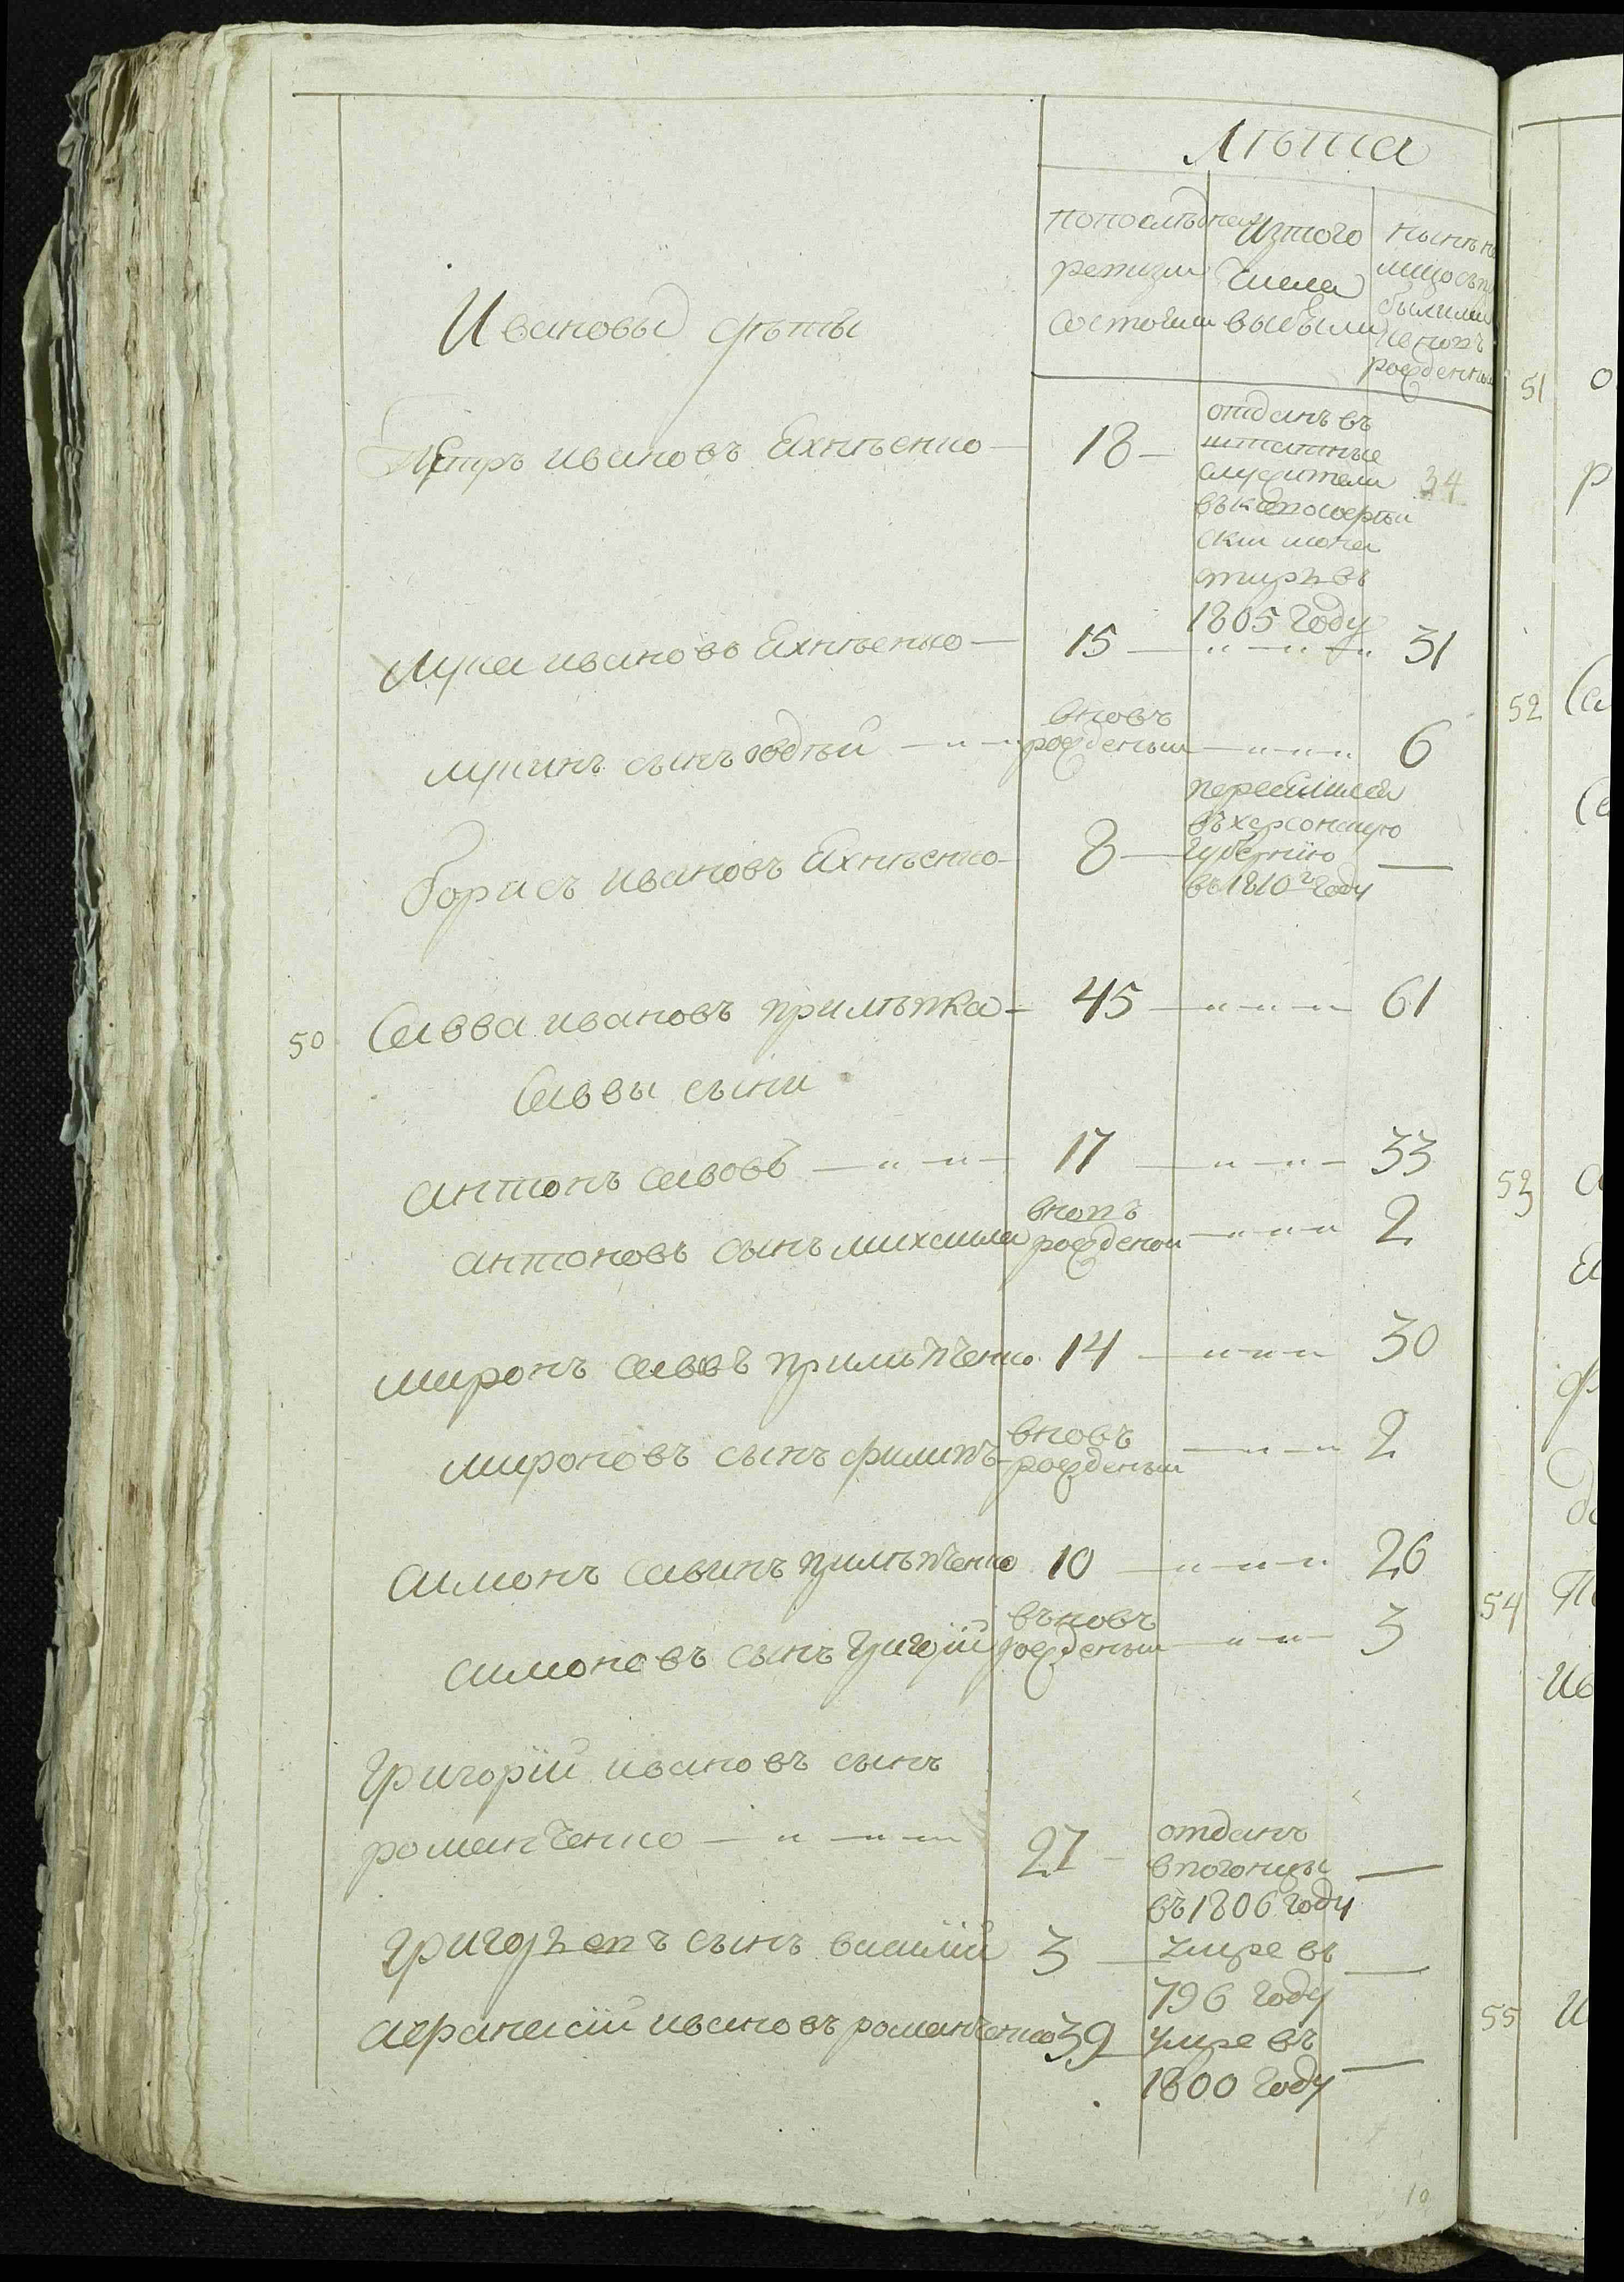 Лѣта
по последней
ревизии
состояли
Изтого
числа
выбыли
нынѣ на
лицо съ при
былими
и вновъ
рожденными
Ивановы дѣты
Петръ ивановъ Яхнѣенко — 18 —
отданъ въ
штатные
служители
скій мона
стирь въ
1805 году
34
лука ивановъ Яхнѣенко — 15 — 31
лукинъ сынъ
вновъ
рожденый 6
борисъ ивановъ Яхнѣенко — 8 —
перешлиса
въ херсонскую
Губернію
въ 1810г году
50 Савва ивановъ прилѣпка — 45 — 61
Саввы сыни
антонъ савовъ — 17 — 33
антоновъ сынъ михаила
вновъ
рожденой 2
миронъ савовъ прилипченко 14 — 30
мироновъ сынъ филипъ
вновъ
рожденый 2
симонъ савинъ прилѣпченко 10 — 26
симоновъ сынъ Григорій
въновъ
рожденый 3
Григорій ивановъ сынъ
романченко — 27 —
отданъ
в погонцы
въ 1806 году
григорьевъ сынъ василій 3
умре въ
796 году
афанасій ивановъ романченко 39
умре въ
1800 году
10
51
52
53
54
55